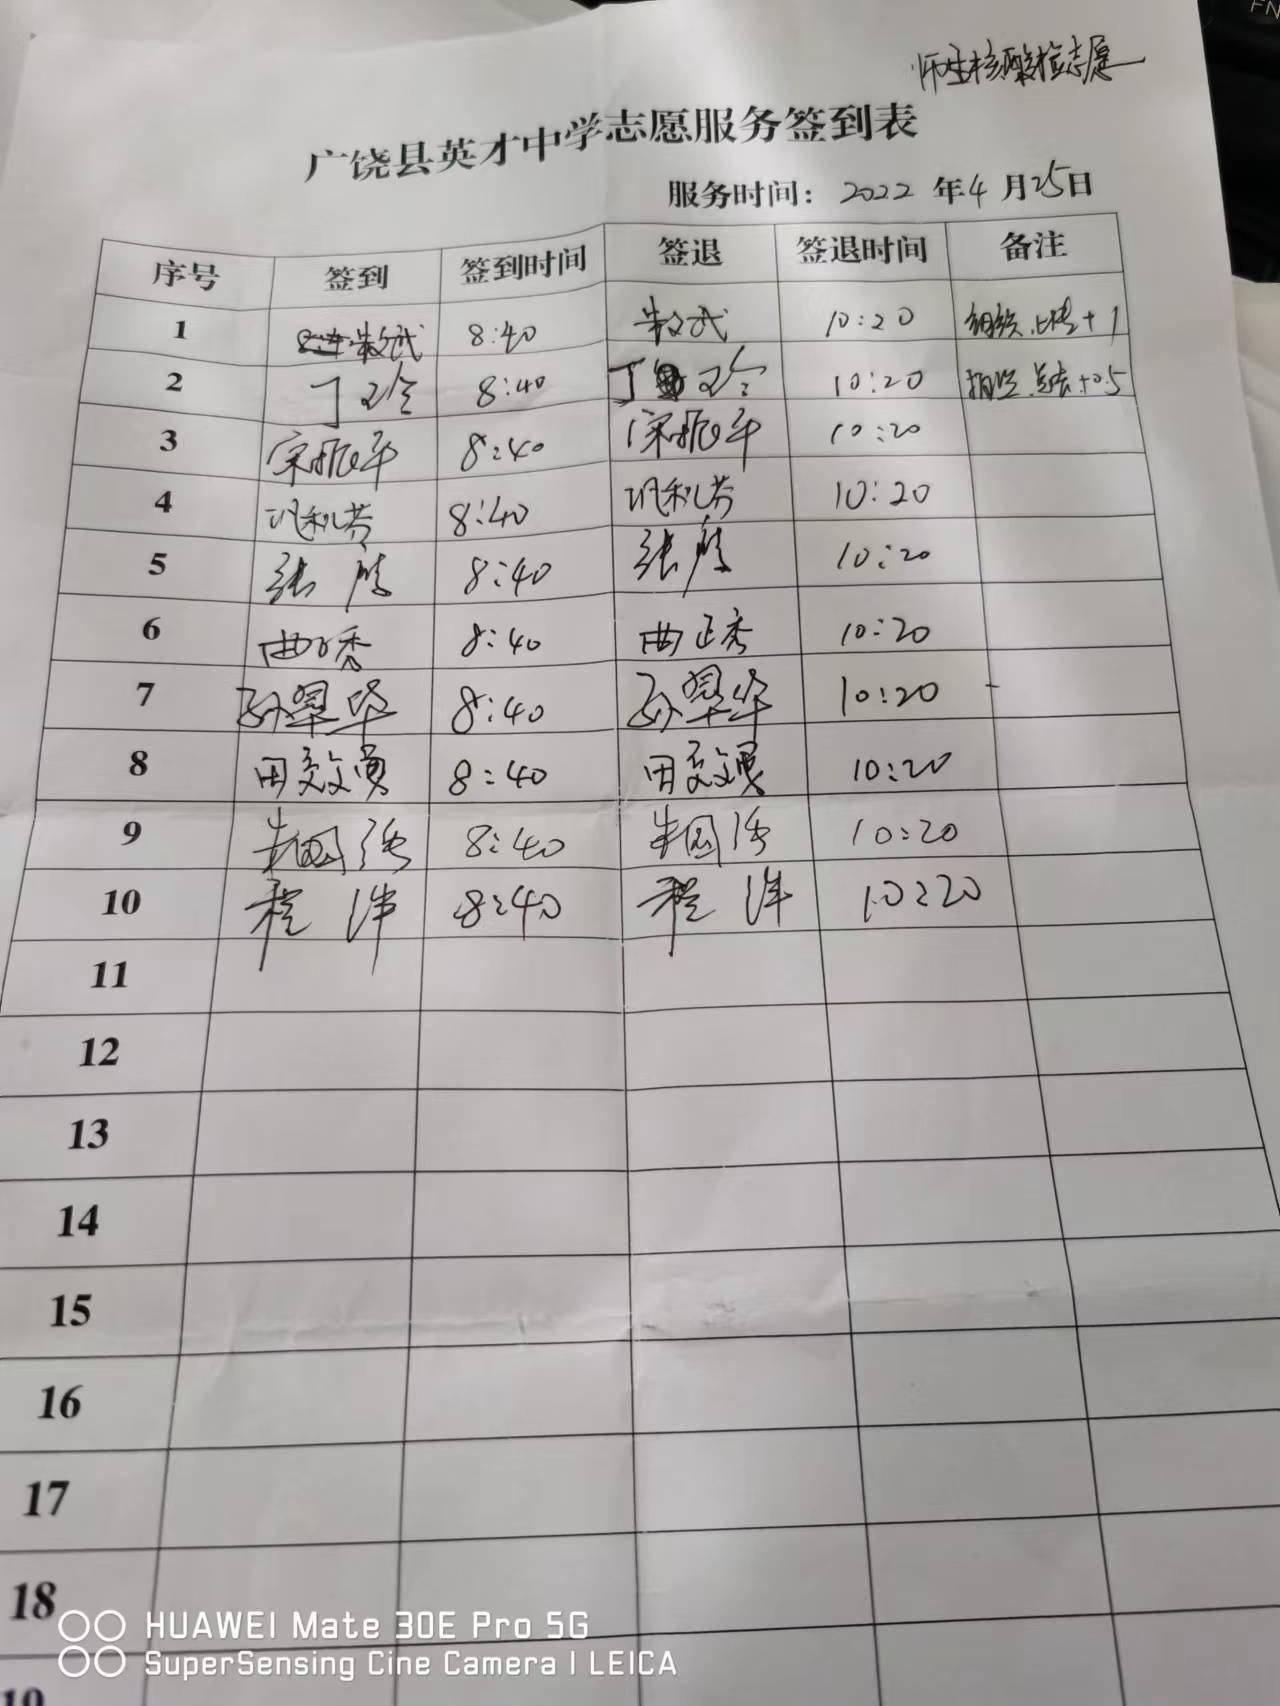 师生核酸检志愿
广饶县英才中学志愿服务签到表
服务时间：2022 年4 月25日
序号 签到 签到时间 签退 签退时间 备注
1 8:40 10:20 +1
2 丁 8:40 丁 10:20 +0.5
3 宋振平 8:40 宋振平 10:20
4 巩利芳 8:40 巩利芳 10:20
5 张 8:40 张 10:20
6 曲正秀 8:40 曲正秀 10:20
7 孙翠华 8:40 孙翠华 10:20
8 田效勇 8:40 田效勇 10:20
9 朱国强 8:40 朱国强 10:20
10 程洋 8:40 程洋 10:20
11
12
13
14
15
16
17
18
19
HUAWEI Mate 30E Pro 5G
SuperSensing Cine Camera | LEICA